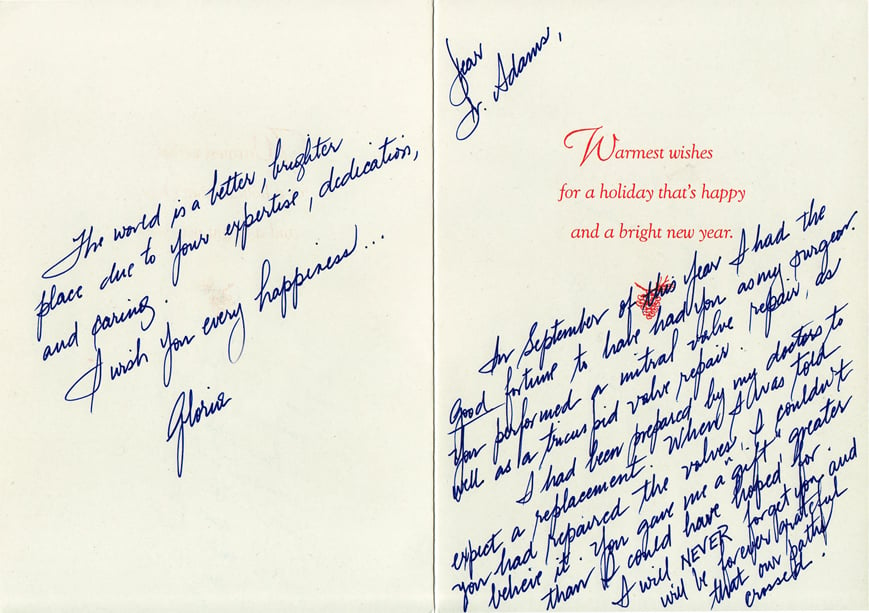 Dear
Dr. Adams,
Warmest wishes
for a holiday that's happy
and a bright new year.
In September of this year I had the
good fortune to have had you as my surgeon.
You performed a mitral valve repair, as
well as a tricuspid valve repair.
I had been prepared by my doctors to
expect a replacement. When I was told
you had repaired the valves, I couldn't
believe it. You gave me a "gift" greater
than I could have hoped for.
I will NEVER forget you and
will be forever grateful
that our paths
crossed.
The world is a better, brighter
place due to your expertise, dedication,
and caring.
I wish you every happiness...
Gloria